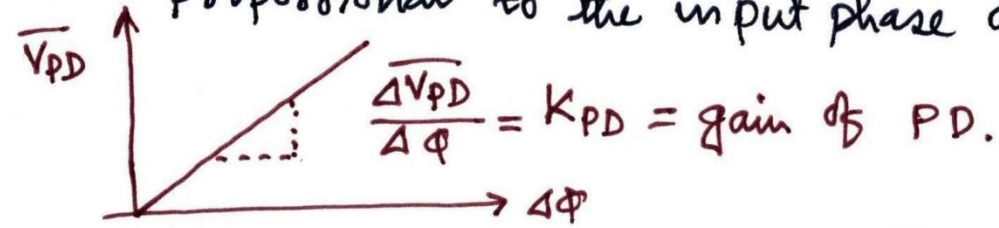 proportional to the input phase
V̅P̅D̅
ΔV̅P̅D̅ / Δφ = KPD = gain of PD.
Δφ